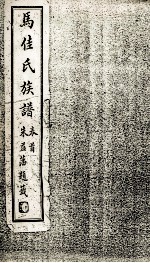 馬佳氏族譜
卷首
朱益藩題籤